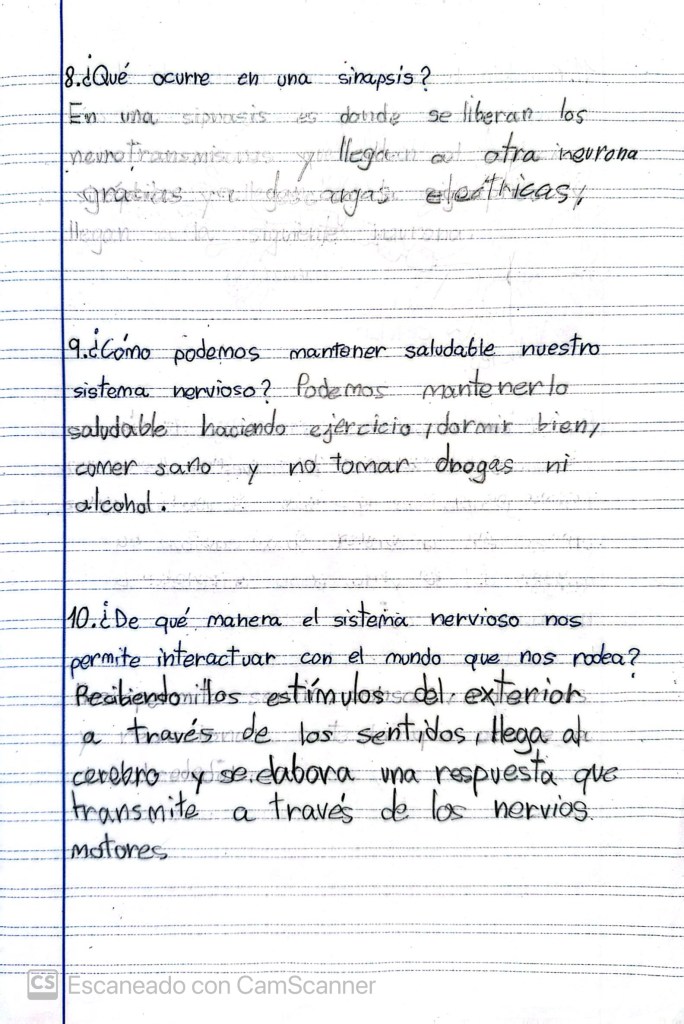 8.¿Qué ocurre en una sinapsis?
En una sipnasis es donde se liberan los
y llegan a otra neurona
gracias a electricas,
llegan
9.¿Cómo podemos mantener saludable nuestro
sistema nervioso? Podemos mantenerlo
saludable haciendo ejercicio, dormir bien,
comer sano y no tomar drogas ni
alcohol.
10.¿De qué manera el sistema nervioso nos
permite interactuar con el mundo que nos rodea?
Recibiendo los estímulos del exterior
a través de los sentidos, llega al
cerebro y se elabora una respuesta que
transmite a través de los nervios
motores
CS Escaneado con CamScanner